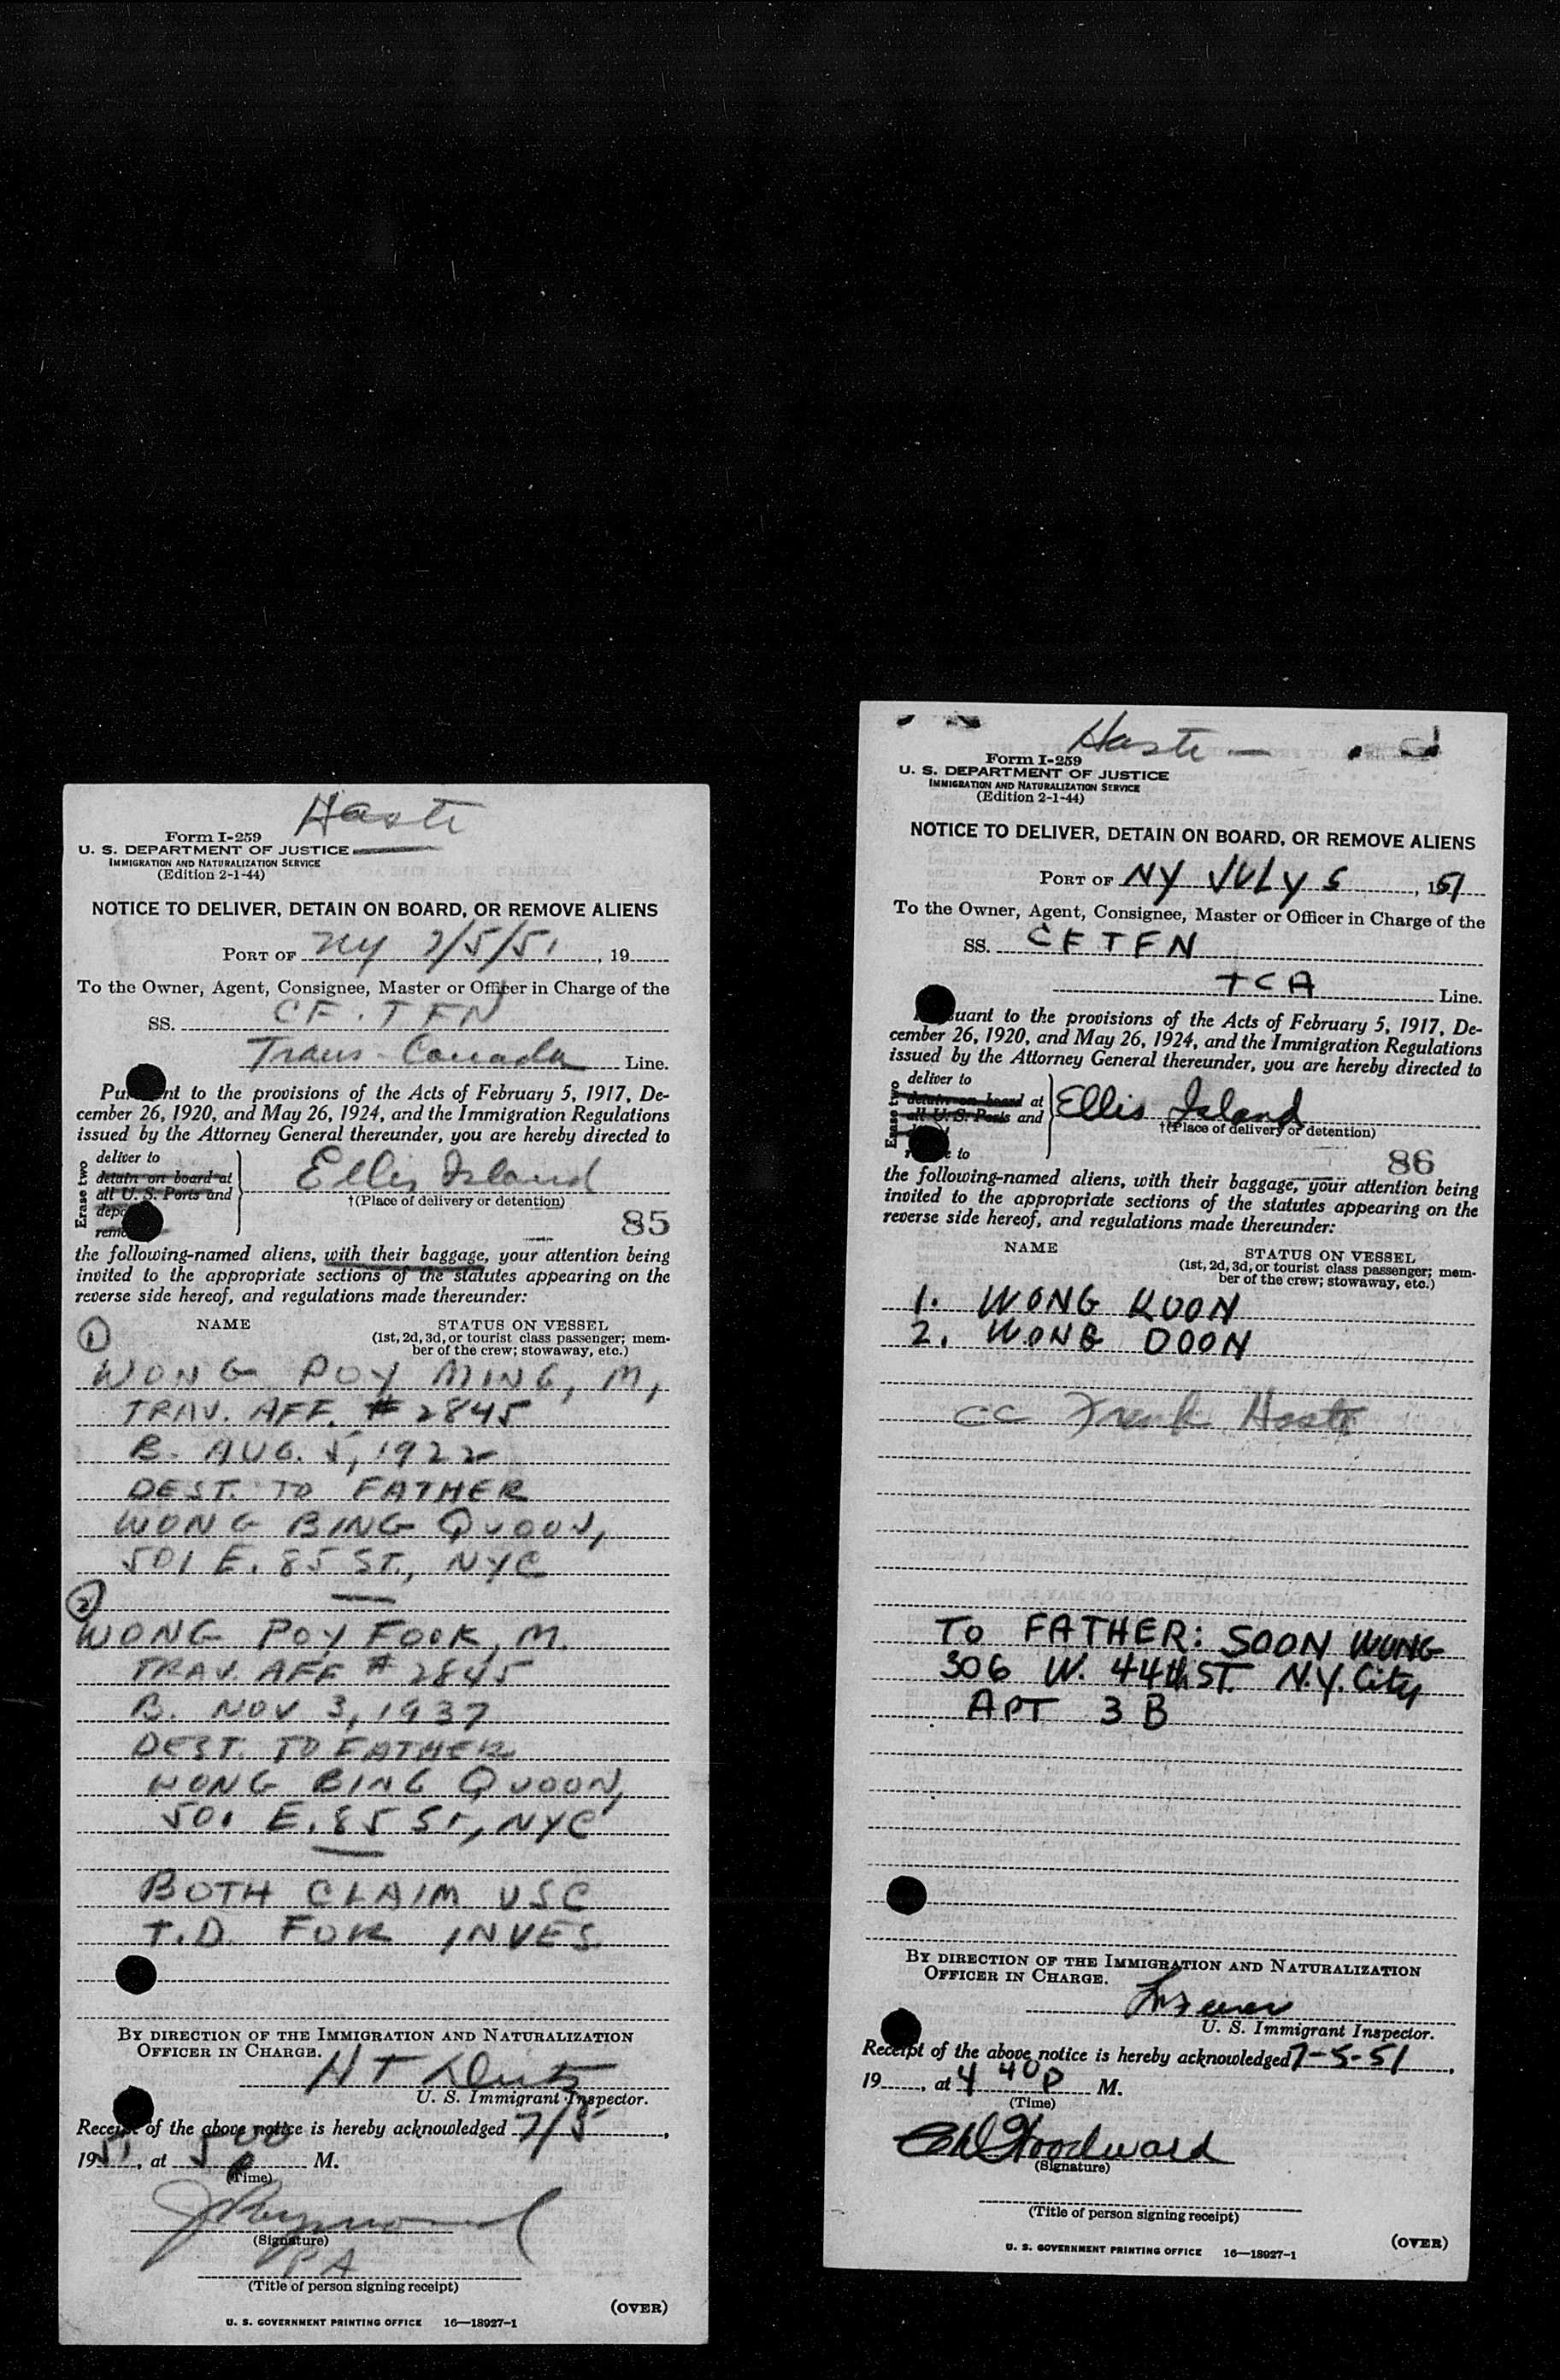 Haste
Form I-259
U. S. DEPARTMENT OF JUSTICE
IMMIGRATION AND NATURALIZATION SERVICE
(Edition 2-1-44)
NOTICE TO DELIVER, DETAIN ON BOARD, OR REMOVE ALIENS
PORT OF NY 7/5/51, 19
To the Owner, Agent, Consignee, Master or Officer in Charge of the
SS. CF-TFN
Trans-Canada Line.
Pursuant to the provisions of the Acts of February 5, 1917, De-
cember 26, 1920, and May 26, 1924, and the Immigration Regulations
issued by the Attorney General thereunder, you are hereby directed to
Erase two
deliver to
detain on board at
all U. S. Ports and
Ellis Island
†(Place of delivery or detention)
85
the following-named aliens, with their baggage, your attention being
invited to the appropriate sections of the statutes appearing on the
reverse side hereof, and regulations made thereunder:
NAME STATUS ON VESSEL
(1st, 2d, 3d, or tourist class passenger; mem-
ber of the crew; stowaway, etc.)
1
WONG POY MING, M,
TRAV. AFF. # 2845
B. AUG. 5, 1922
DEST. TO FATHER
WONG BING QUOON,
501 E. 85 ST., NYC
2
WONG POY FOOK, M.
TRAV. AFF # 2845
B. NOV 3, 1937
DEST. TO FATHER
WONG BING QUOON,
501 E. 85 ST, NYC
BOTH CLAIM USC
T.D. FOR INVES
BY DIRECTION OF THE IMMIGRATION AND NATURALIZATION
OFFICER IN CHARGE.
H T
U. S. Immigrant Inspector.
Receipt of the above notice is hereby acknowledged 7/5,
1951, at 5 00 P M.
(Time)
J Raymond
(Signature)
PA
(Title of person signing receipt)
(OVER)
U. S. GOVERNMENT PRINTING OFFICE 16—18927-1
Haste —
Form I-259
U. S. DEPARTMENT OF JUSTICE
IMMIGRATION AND NATURALIZATION SERVICE
(Edition 2-1-44)
NOTICE TO DELIVER, DETAIN ON BOARD, OR REMOVE ALIENS
PORT OF NY JULY 5, 1951
To the Owner, Agent, Consignee, Master or Officer in Charge of the
SS. CFTFN
TCA Line.
Pursuant to the provisions of the Acts of February 5, 1917, De-
cember 26, 1920, and May 26, 1924, and the Immigration Regulations
issued by the Attorney General thereunder, you are hereby directed to
Erase two
deliver to
detain on board at
all U. S. Ports and
to
Ellis Island
†(Place of delivery or detention)
86
the following-named aliens, with their baggage, your attention being
invited to the appropriate sections of the statutes appearing on the
reverse side hereof, and regulations made thereunder:
NAME STATUS ON VESSEL
(1st, 2d, 3d, or tourist class passenger; mem-
ber of the crew; stowaway, etc.)
1. WONG KUON
2. WONG DOON
cc Frank Haste
TO FATHER: SOON WONG
306 W. 44th ST. N.Y. City
APT 3B
BY DIRECTION OF THE IMMIGRATION AND NATURALIZATION
OFFICER IN CHARGE.
U. S. Immigrant Inspector.
Receipt of the above notice is hereby acknowledged 7-5-51,
19, at 4 40 P M.
(Time)
Woodward
(Signature)
(Title of person signing receipt)
(OVER)
U. S. GOVERNMENT PRINTING OFFICE 16—18927-1